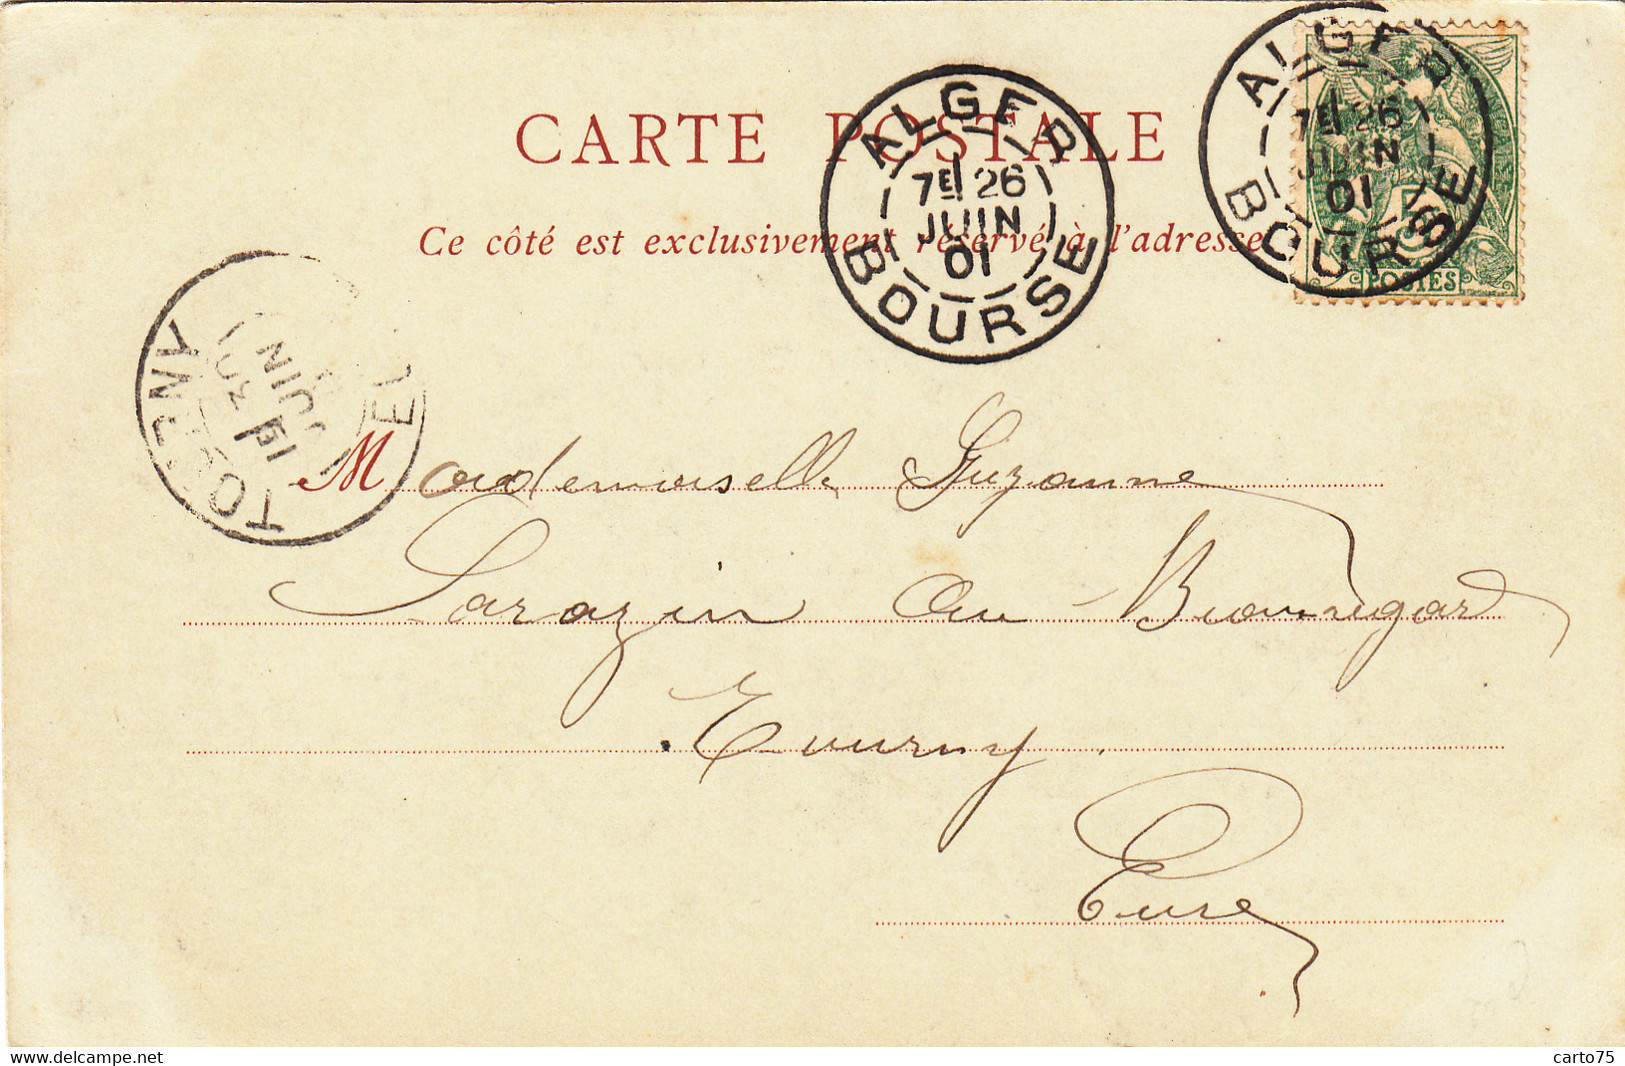 CARTE POSTALE
Ce côté est exclusivement réservé à l'adresse
ALGER
7E 26
JUIN
01
BOURSE
ALGER
7E 26
JUIN
01
BOURSE
POSTES
TOURNY
1E
JUIN
01
Mademoiselle Suzanne
Sarazin au Beauregard
Tourny
Eure
carto75